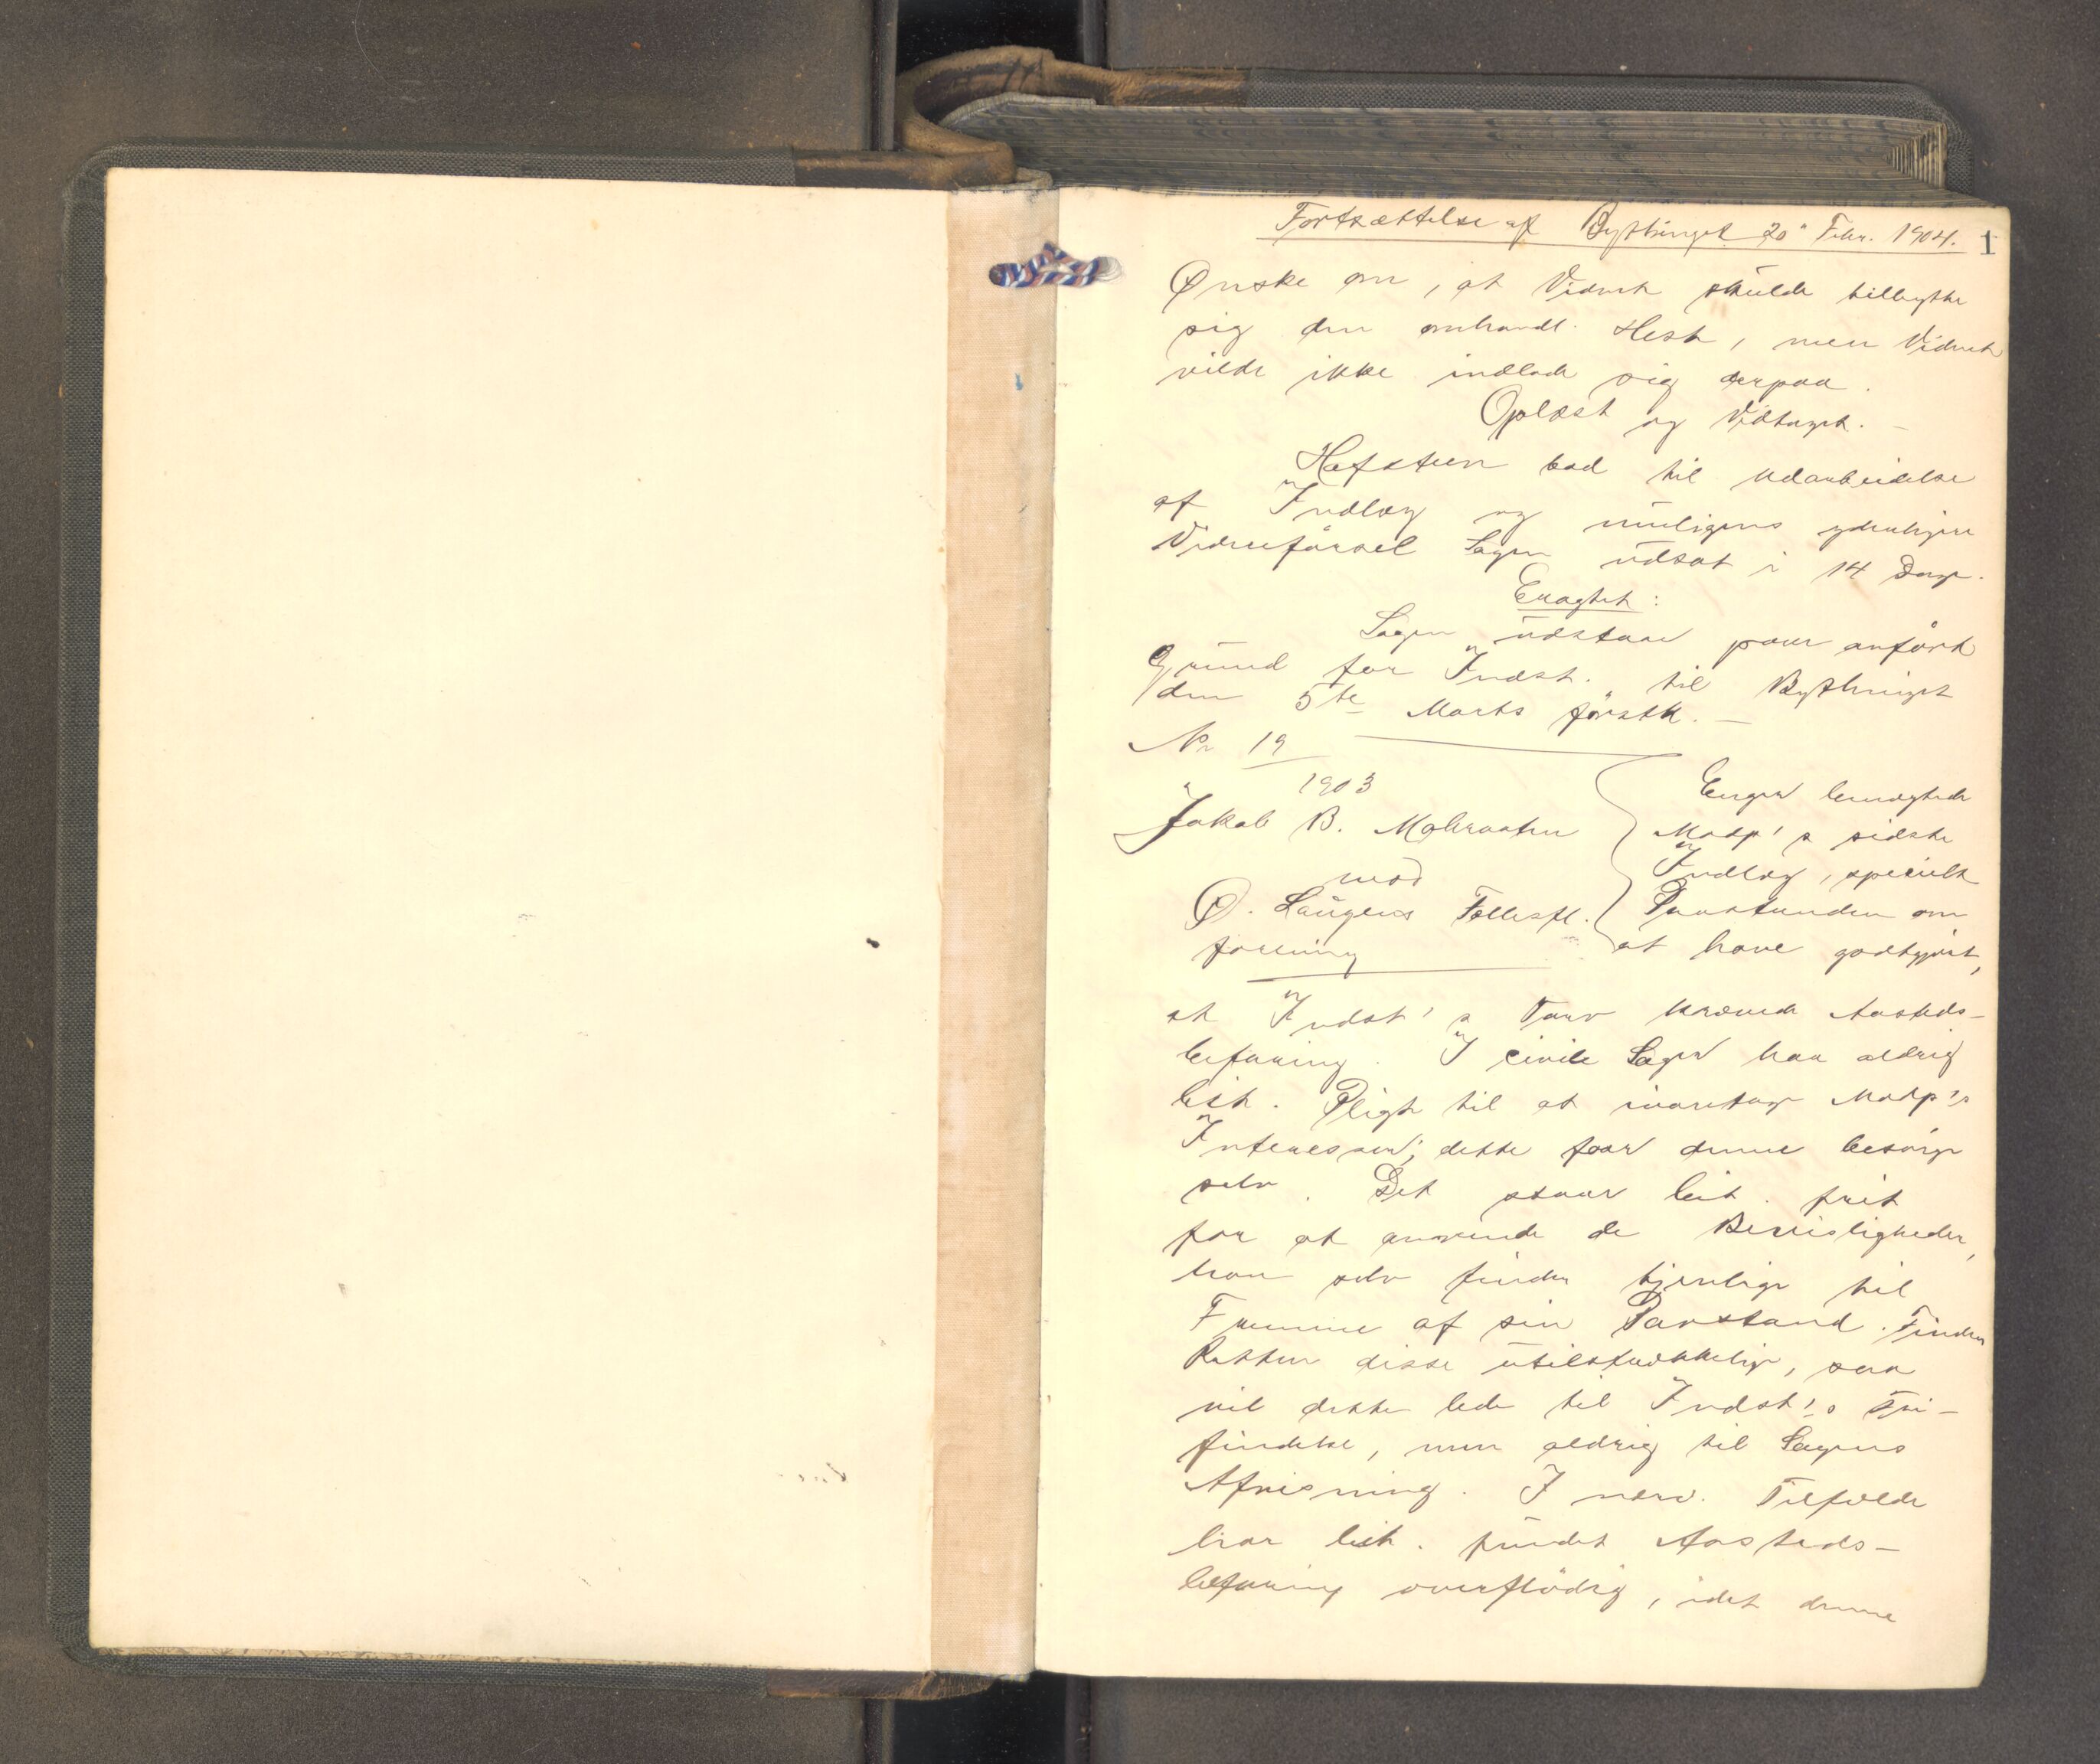 Fortsættelse af Bythinget 20" Febr. 1904.
1
Ønske om, at Vidnet skulde tilbytte
sig den omhandl. Hest, men Vidnet
vilde ikke indlade sig derpaa.
Oplæst og Vedtaget. —
Hafsteen bad til Udarbeidelse
af Indlæg og muligens yderligere
Vidneførsel Sagen udsat i 14 Dage.
Eragtet:
Sagen udstaar paa anført
Grund for Indst. til Bythinget
den 5te Marts førstk. —
No 19
1903
Jakob B.
mod
O. Laugens Fellesfl.
forening
Enger benægtede
Modp's sidste
Indlæg, specielt
Paastanden om
at have godtgjort,
at Indst's Tarv krævede Aasteds-
befaring. I civile Sager har aldrig
Cit. Pligt til at ivaretage Modp's
Interesser; dette faar denne besørge
selv. Det staar Cit. frit
for at anvende de Bevisligheder,
han selv finder tjenlige til
Fremme af sin Paastand. Finder
Retten disse utilstrækkelige, saa
vil dette lede til Indst's Fri-
findelse, men aldrig til Sagens
Afvisning. I nærv. Tilfælde
har Cit. fundet Aasteds-
befaring overflødig, idet denne